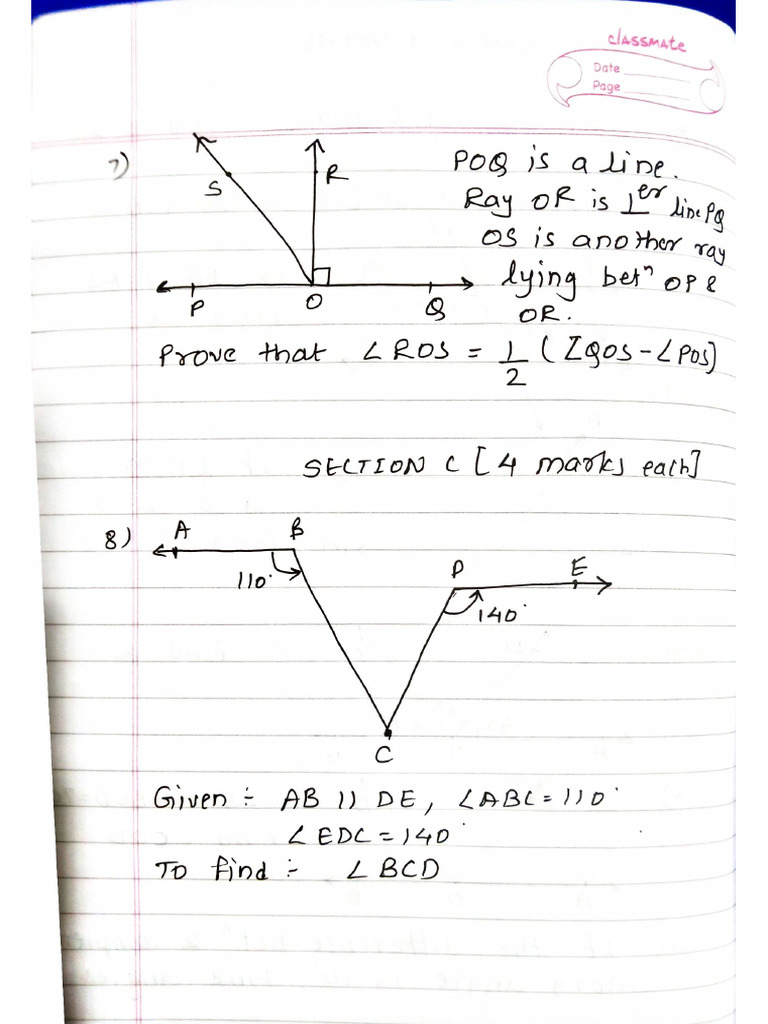 classmate
Date
Page
7)
S
R
P
O
Q
POQ is a line.
Ray OR is ⊥er line PQ
OS is another ray
lying betn OP &
OR.
Prove that ∠ROS = 1/2 (∠QOS - ∠POS)
SECTION C [4 marks each]
8)
A
B
110°
D
E
140°
C
Given :- AB || DE, ∠ABC = 110°
∠EDC = 140°
To find :- ∠BCD